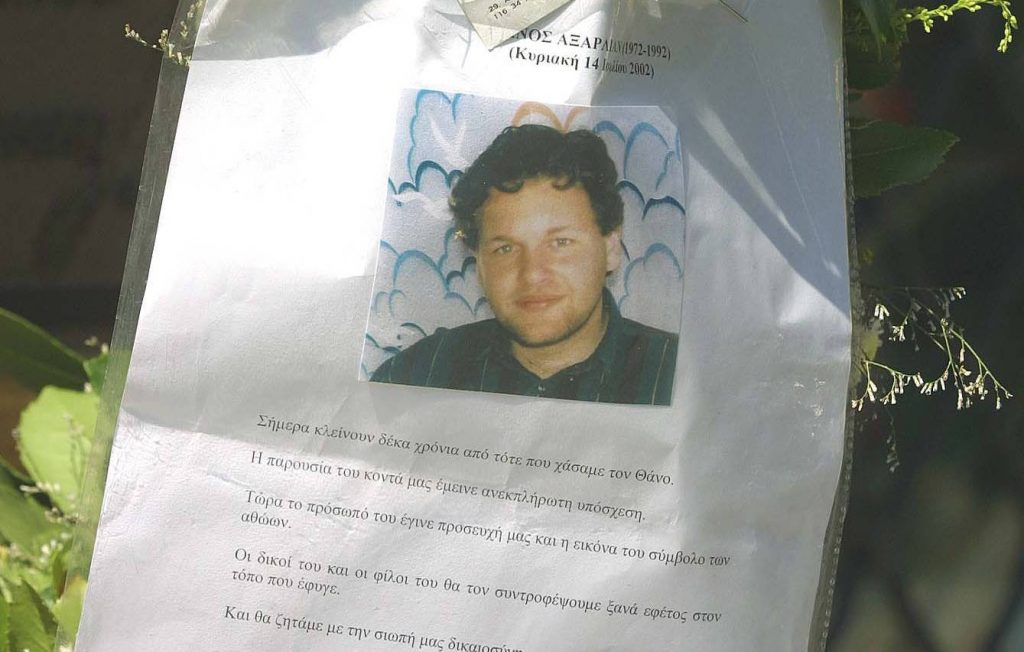 29.
116 34
ΝΟΣ ΑΞΑΡΛΙΑΝ (1972-1992)
(Κυριακή 14 Ιουλίου 2002)
Σήμερα κλείνουν δέκα χρόνια από τότε που χάσαμε τον Θάνο.
Η παρουσία του κοντά μας έμεινε ανεκπλήρωτη υπόσχεση.
Τώρα το πρόσωπό του έγινε προσευχή μας και η εικόνα του σύμβολο των
αθώων.
Οι δικοί του και οι φίλοι του θα τον συντροφέψουμε ξανά εφέτος στον
τόπο που έφυγε.
Και θα ζητάμε με την σιωπή μας δικαιοσύνη